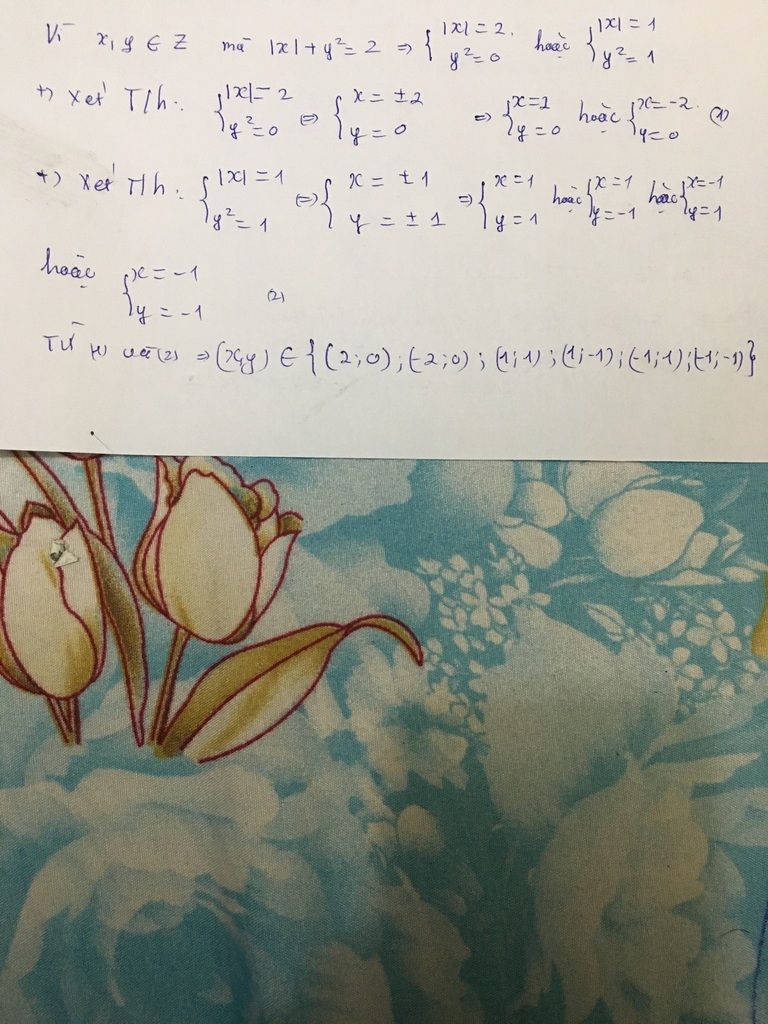 Vì x, y ∈ Z mà |x| + y² = 2 => { |x| = 2. y² = 0 hoặc { |x| = 1 y² = 1
+) Xét T/h: { |x| = 2 y² = 0 <=> { x = ±2 y = 0 => { x = 2 y = 0 hoặc { x = -2. y = 0 (1)
+) Xét T/h: { |x| = 1 y² = 1 <=> { x = ±1 y = ±1 => { x = 1 y = 1 hoặc { x = 1 y = -1 hoặc { x = -1 y = 1
hoặc { x = -1 y = -1 (2)
Từ (1) và (2) => (x,y) ∈ { (2;0); (-2;0); (1;1); (1;-1); (-1;1); (-1;-1) }